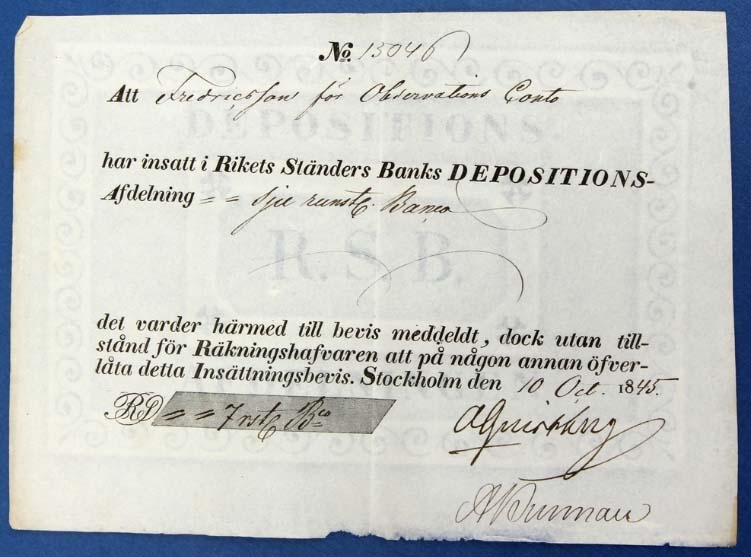 No. 13046
Att Fredricsson för Observations Conto
DEPOSITIONS
har insatt i Rikets Ständers Banks DEPOSITIONS-
Afdelning = = Sju Banco
R. S. B.
det varder härmed till bevis meddeldt, dock utan till-
stånd för Räkningshafvaren att på någon annan öfver-
låta detta Insättningsbevis. Stockholm den 10 Oct. 1845.
RD = = 7 Bco